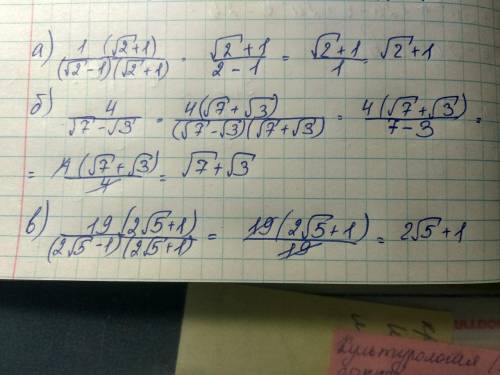 а) 1 (√2+1) / (√2-1)(√2+1) = √2+1 / 2-1 = √2+1 / 1 = √2+1
б) 4 / √7-√3 = 4(√7+√3) / (√7-√3)(√7+√3) = 4(√7+√3) / 7-3 =
= 4(√7+√3) / 4 = √7+√3
в) 19(2√5+1) / (2√5-1)(2√5+1) = 19(2√5+1) / 19 = 2√5+1
Культурология